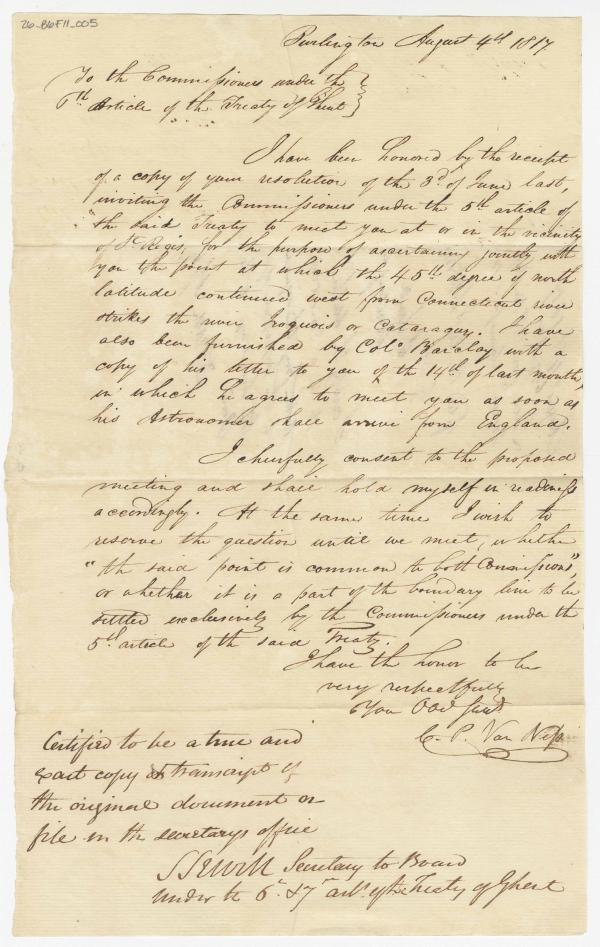 26-B6F11_005
Burlington August 4th 1817
To the Commissioners under the
6th Article of the Treaty of Ghent
I have been honored by the receipt
of a copy of your resolution of the 3d. of June last,
inviting the Commissioners under the 5th article of
the said Treaty to meet you at or in the vicinity
of St. Regis, for the purpose of ascertaining jointly with
you the point at which the 45th degree of north
latitude continued west from Connecticut river
strikes the river Iroquois or Cataraguy. I have
also been furnished by Colo. Barclay with a
copy of his letter to you of the 14th of last month,
in which he agrees to meet you as soon as
his Astronomer shall arrive from England.
I cheerfully consent to the proposed
meeting and shall hold myself in readiness
accordingly. At the same time I wish to
reserve the question until we meet, whether
"the said point is common to both Commissions",
or whether it is a part of the boundary line to be
settled exclusively by the Commissioners under the
5th article of the said Treaty.
I have the honor to be
very respectfully
Your Obd. Servt.
C. P. Van Ness
Certified to be a true and
exact copy & transcript of
the original document on
file in the secretarys office
Secretary to Board
under the 6th. & 7th arts. of the Treaty of Ghent